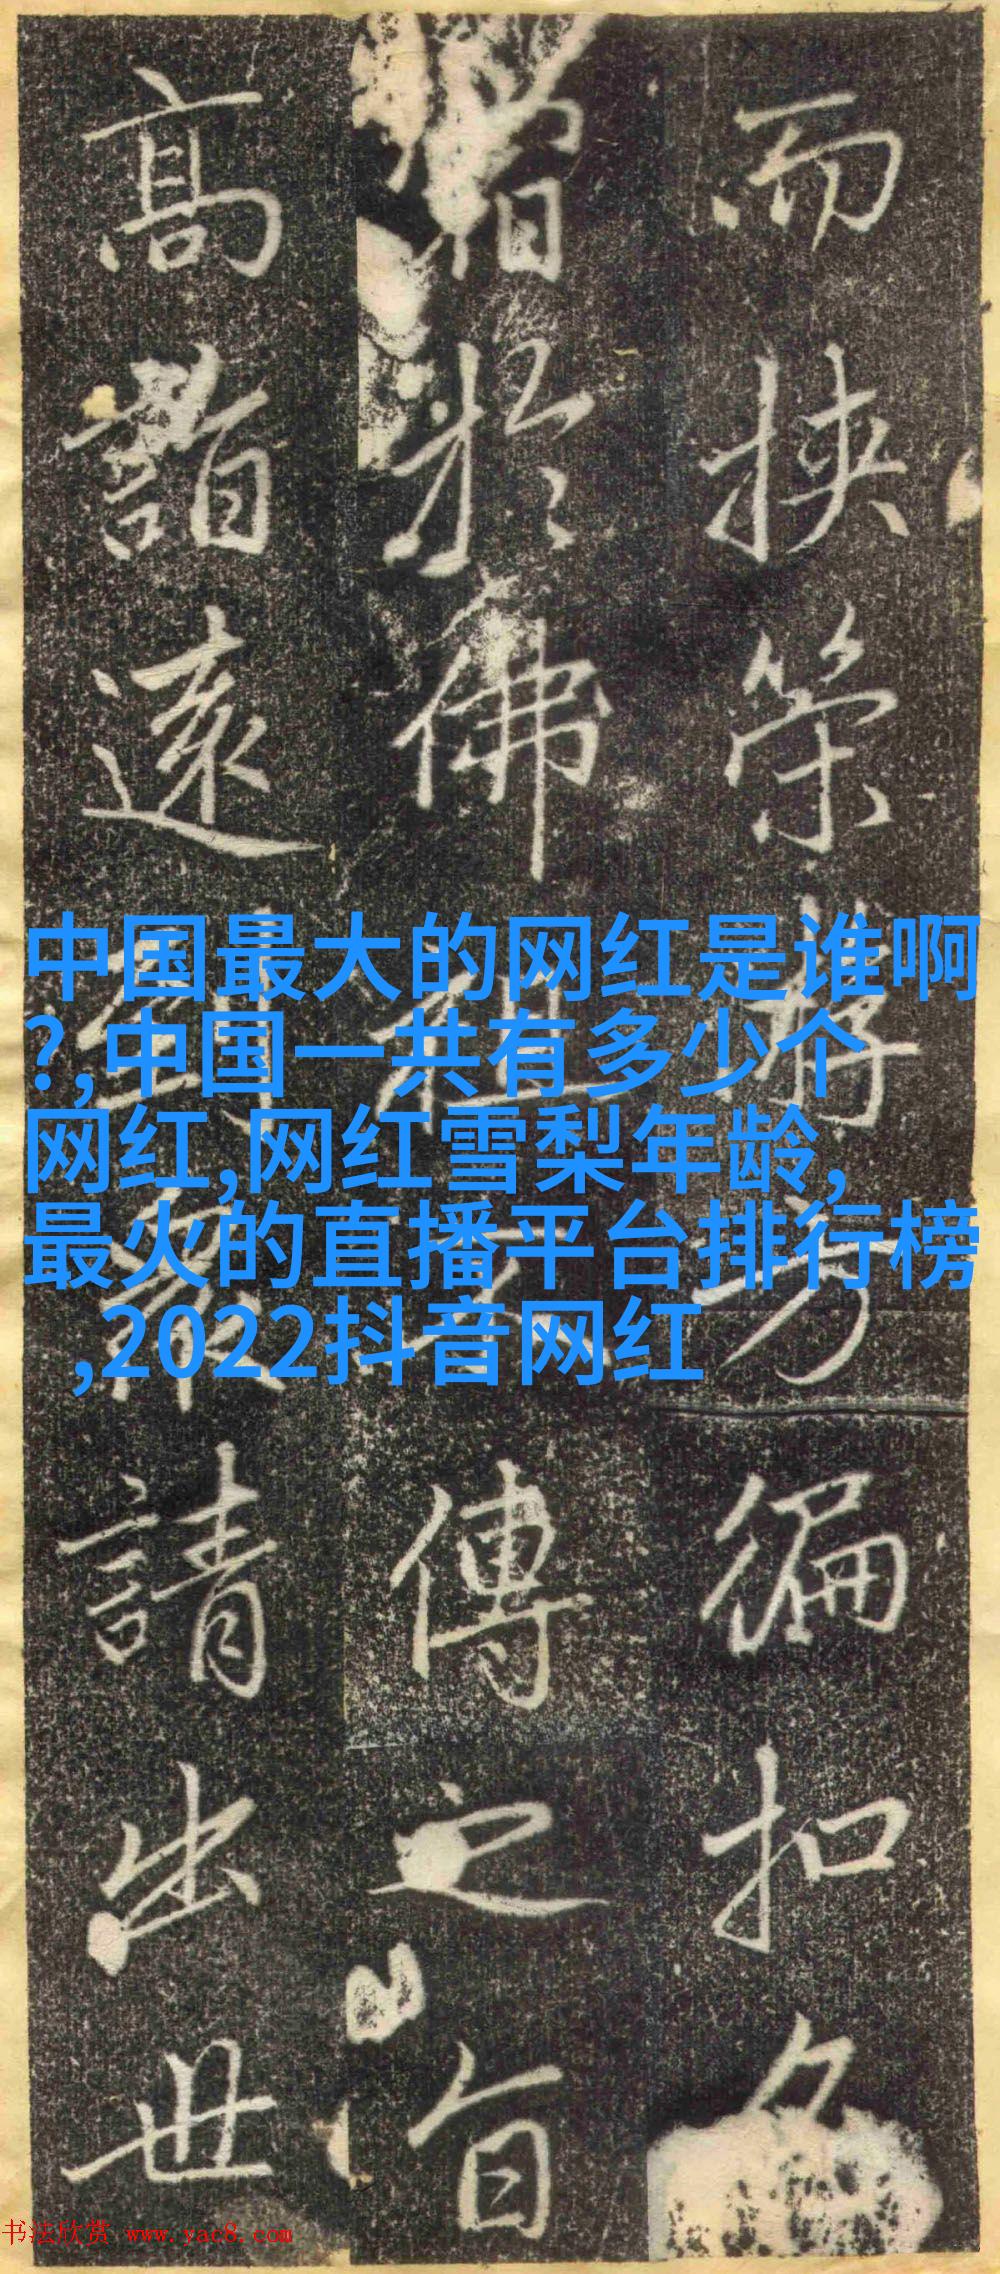 而挟策将方徧扣名
于佛祖
傳之旨
高諧遠
請出世
中国最大的网红是谁啊
?,中国一共有多少个
网红,网红雪梨年龄,
最火的直播平台排行榜
,2022抖音网红
书法欣赏 www.yac8.com